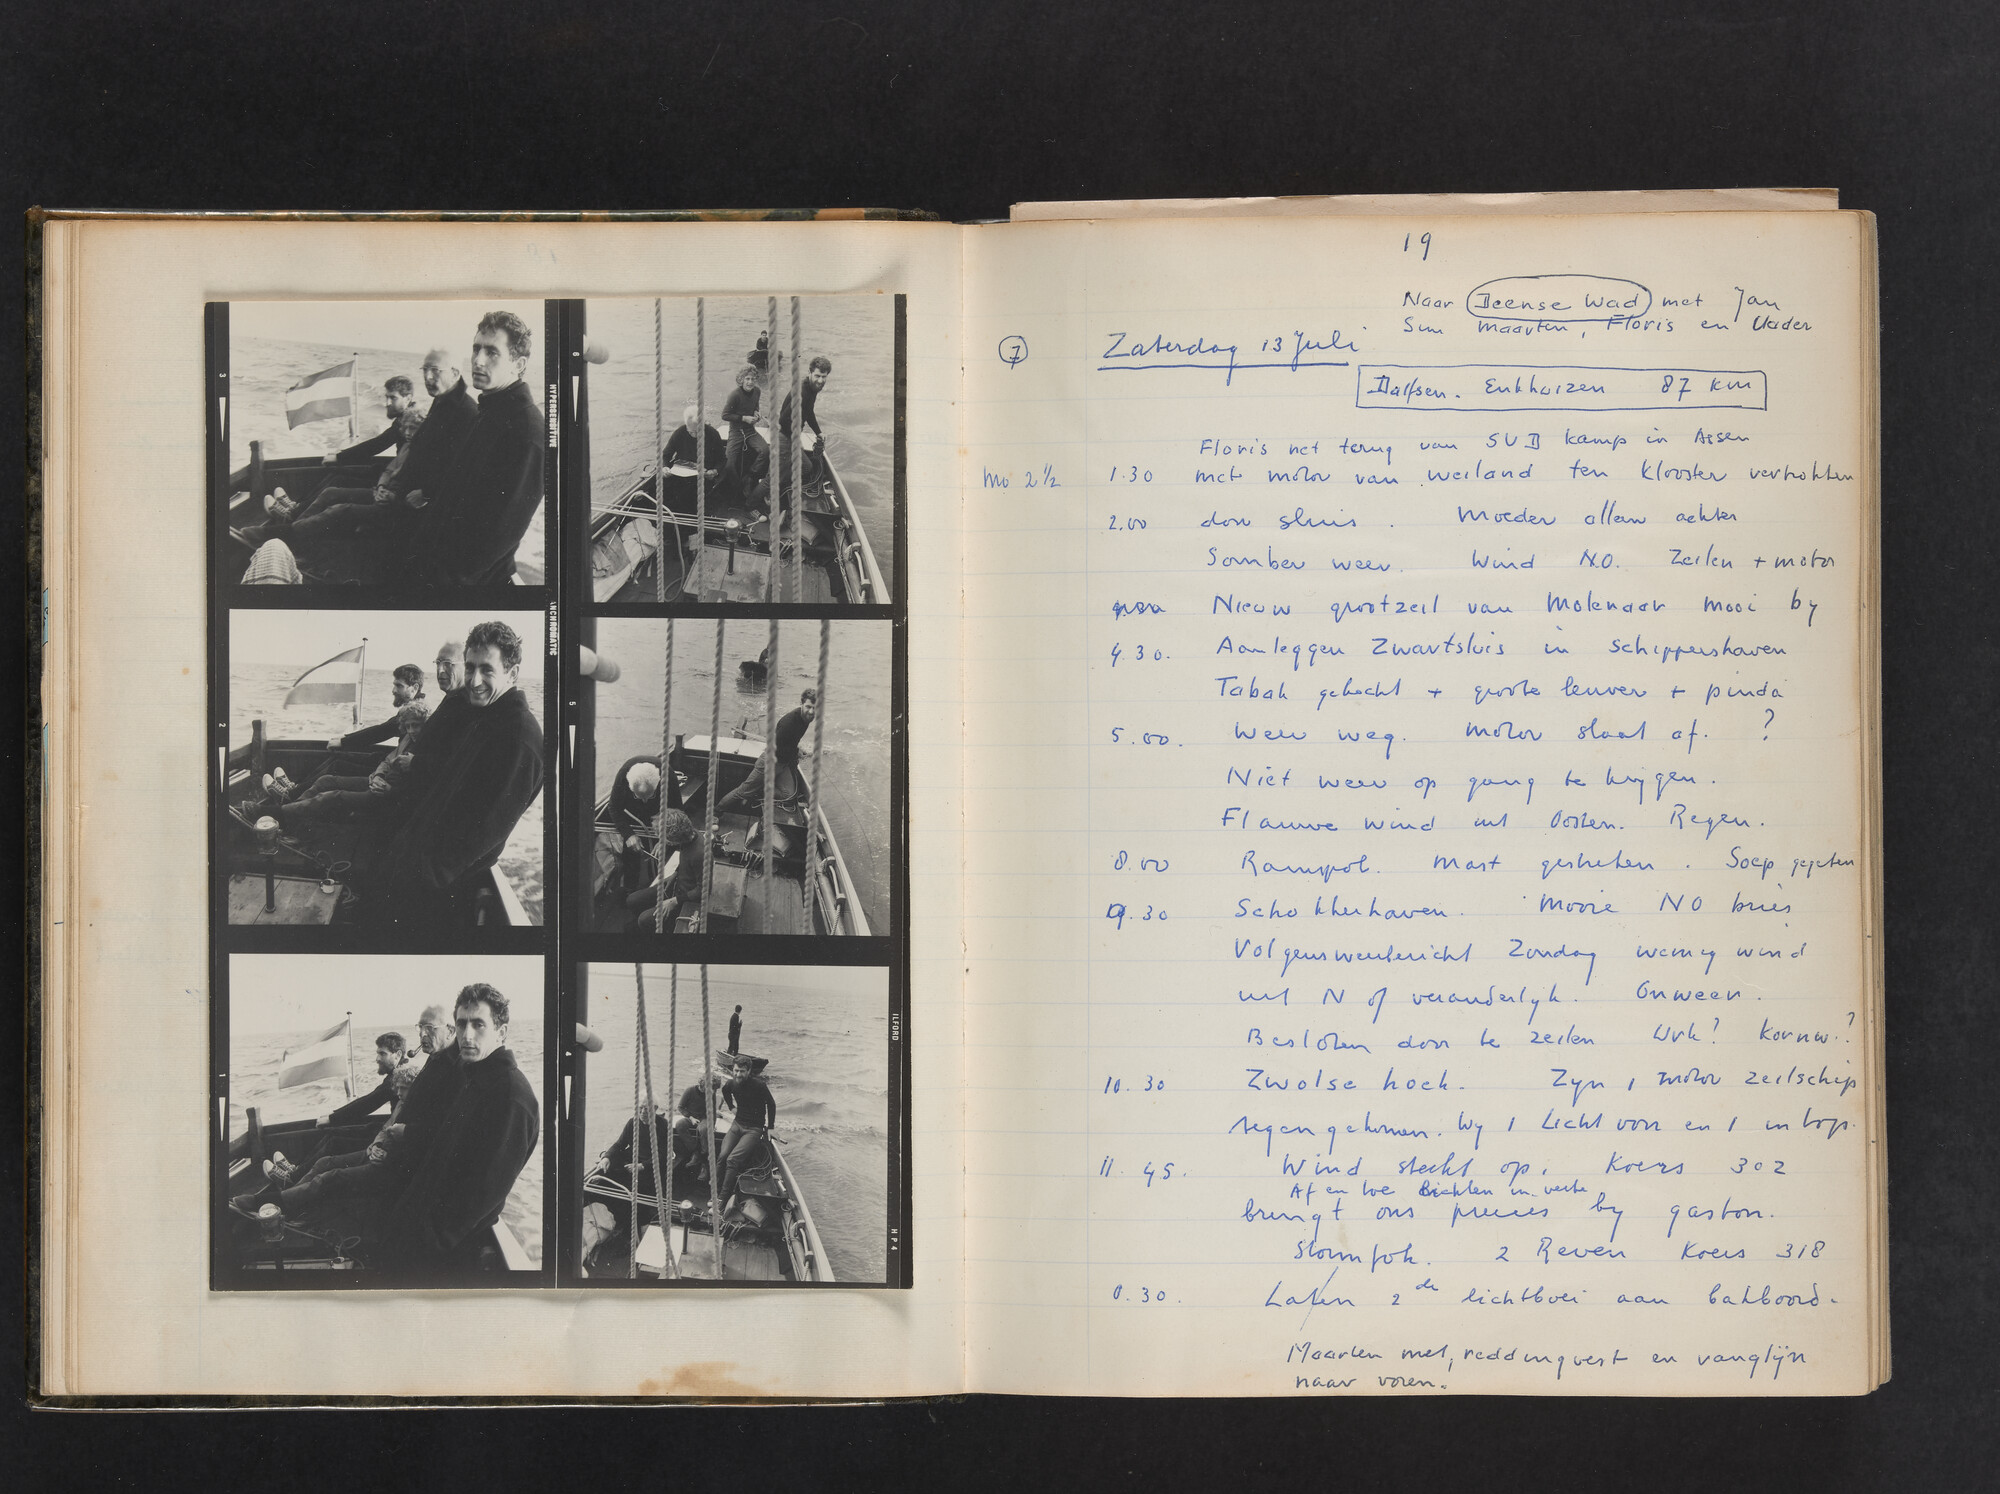 3
HYPERSENSITIVE
2
PANCHROMATIC
1
6
5
4
ILFORD
HP4
19
Naar Deense Wad met Jan
Sim Maarten, Floris en Vader
7
Zaterdag 13 Juli
Dalfsen. Enkhuizen 87 km
Floris net terug van SUD kamp in Assen
Mo 2 1/2 1.30 met motor van weiland ten Klooster vertrokken
2.00 door sluis. Moeder alleen achter
Somber weer. Wind N.O. Zeilen + motor
Nieuw grootzeil van Molenaar mooi by
4.30. Aanleggen Zwartsluis in Schippershaven
Tabak gekocht + groote leuver + pinda
5.00. Weer weg. Motor slaat af. ?
Niet weer op gang te krijgen.
Flauwe wind uit Oosten. Regen.
8.00 Ramspol. Mast gestreken. Soep gegeten
9.30 Schokkerhaven. Mooie NO bries
Volgens weerbericht Zondag weinig wind
uit N of veranderlyk. Onweer.
Besloten door te zeilen Urk? Kornw.?
10.30 Zwolse hoek. Zyn 1 motor zeilschip
tegengekomen. Wy 1 Licht voor en 1 in top.
11.45. Wind steekt op. Koers 302
Af en toe lichten in verte
brengt ons precies by gaston.
Stormfok. 2 Reven Koers 318
0.30. Laten 2de lichtboei aan bakboord.
Maarten met reddingvest en vanglijn
naar voren.